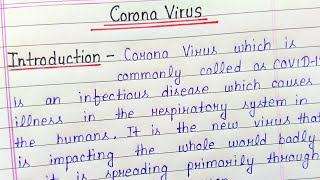 Corona Virus
Introduction - Corona Virus which is
commonly called as COVID-1
is an infectious disease which causes
illness in the respiratory system in
the humans. It is the new virus that
is impacting the whole world badly
it is spreading primarily through